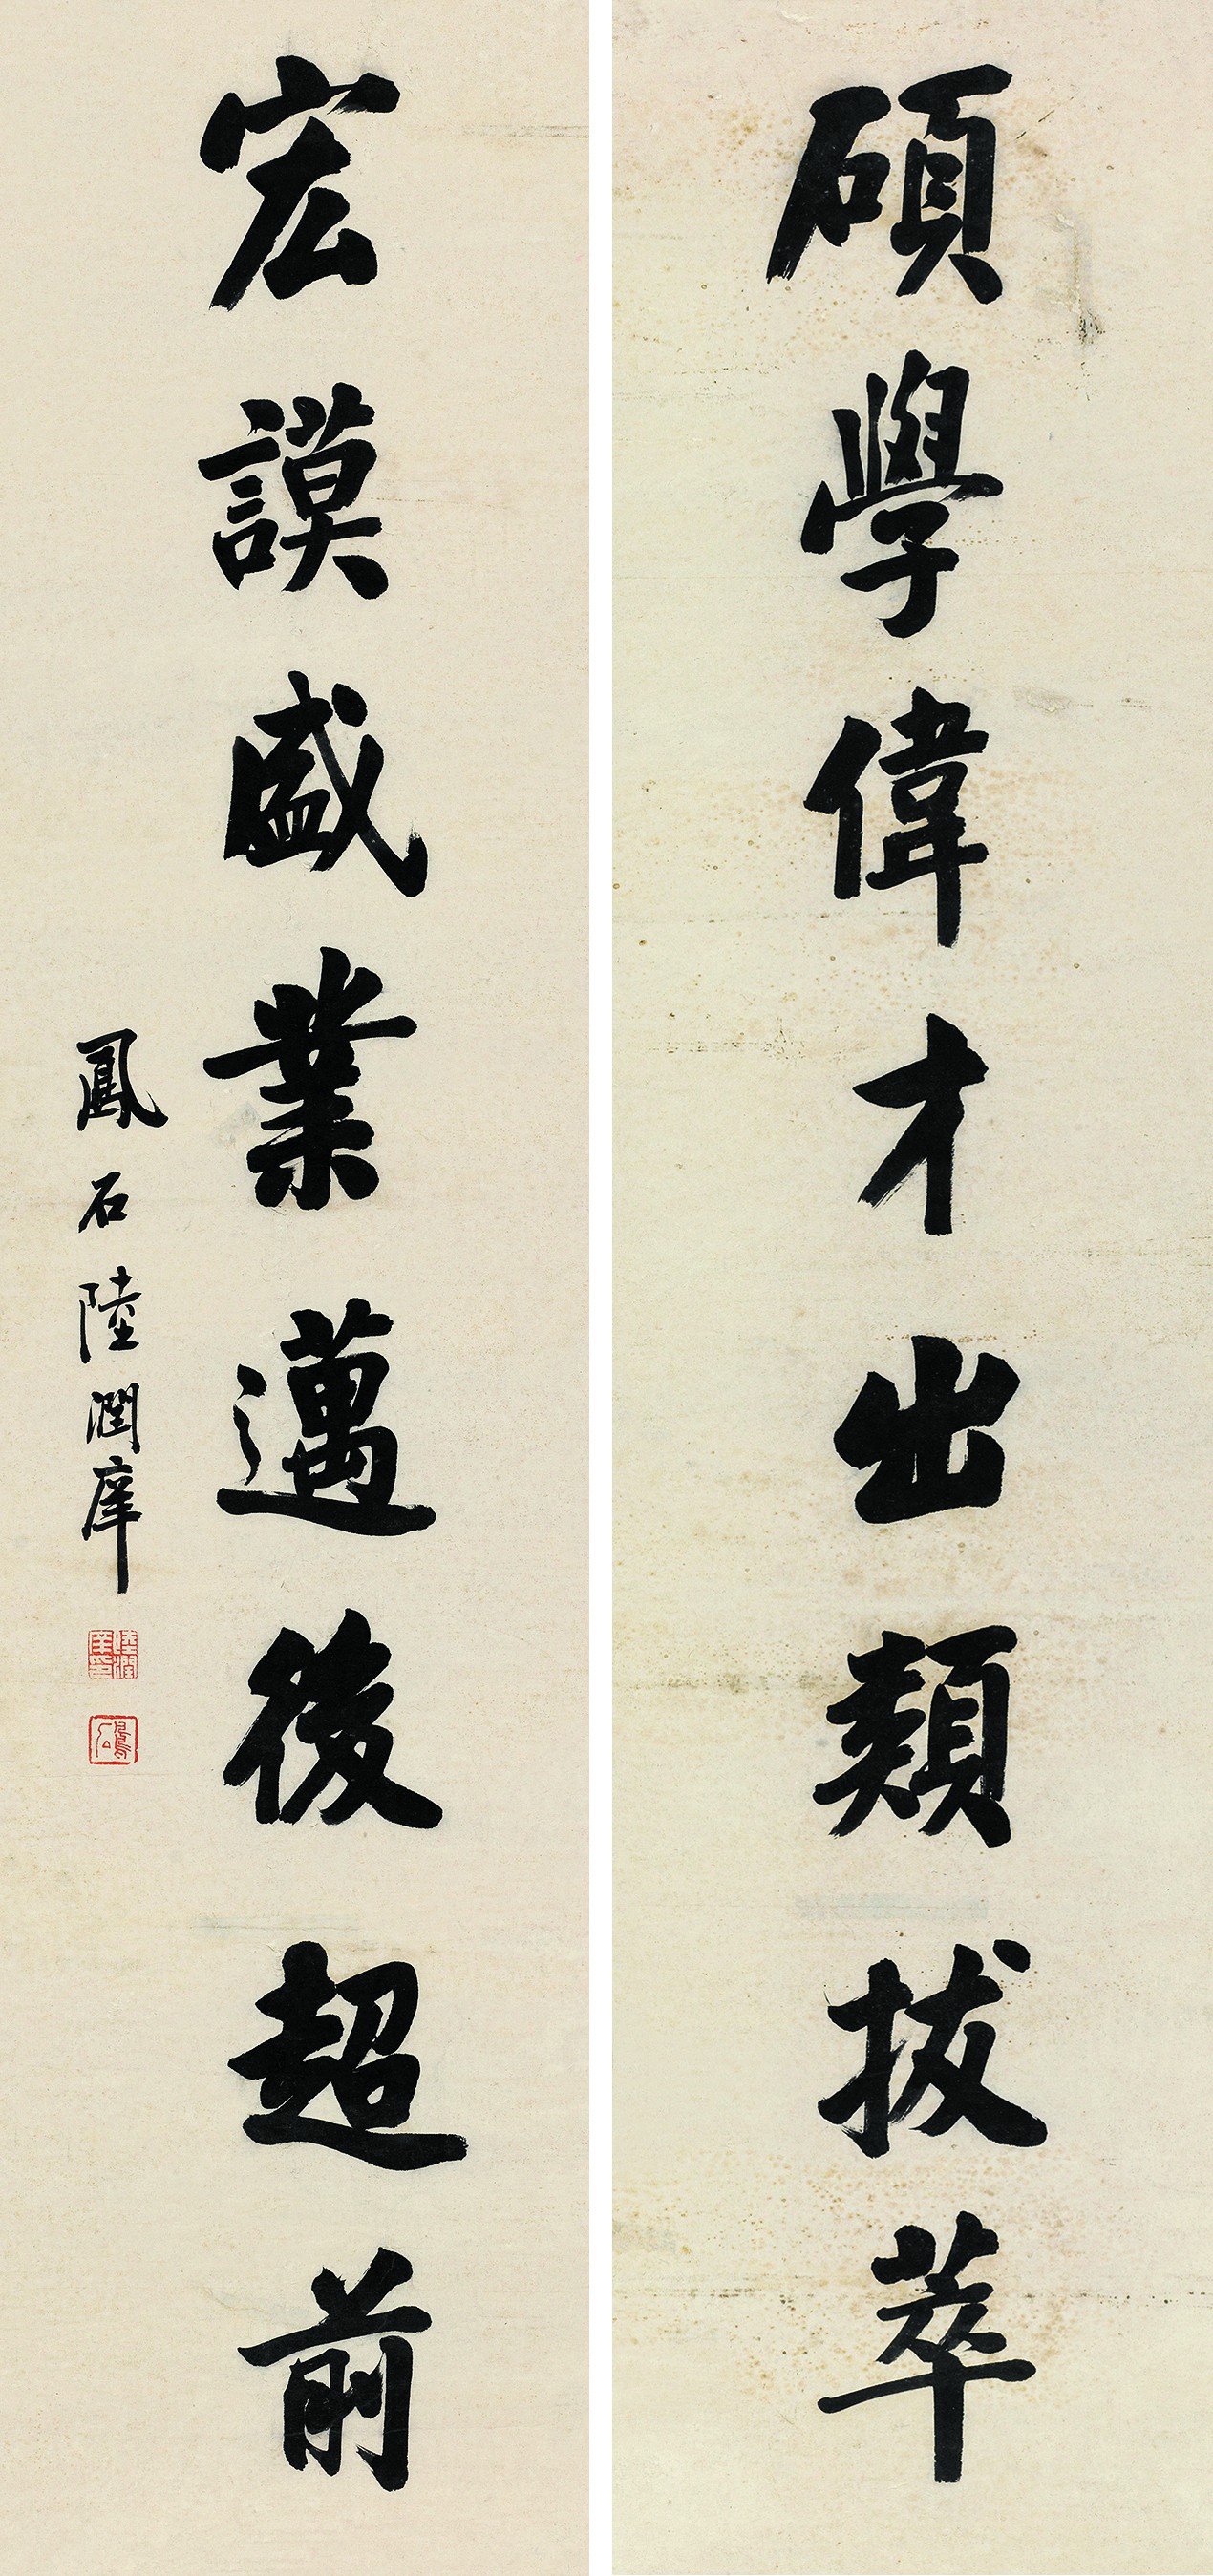 碩學偉才出類拔萃
宏謨盛業邁後超前
鳳石陸潤庠
陸潤庠印
鳳石